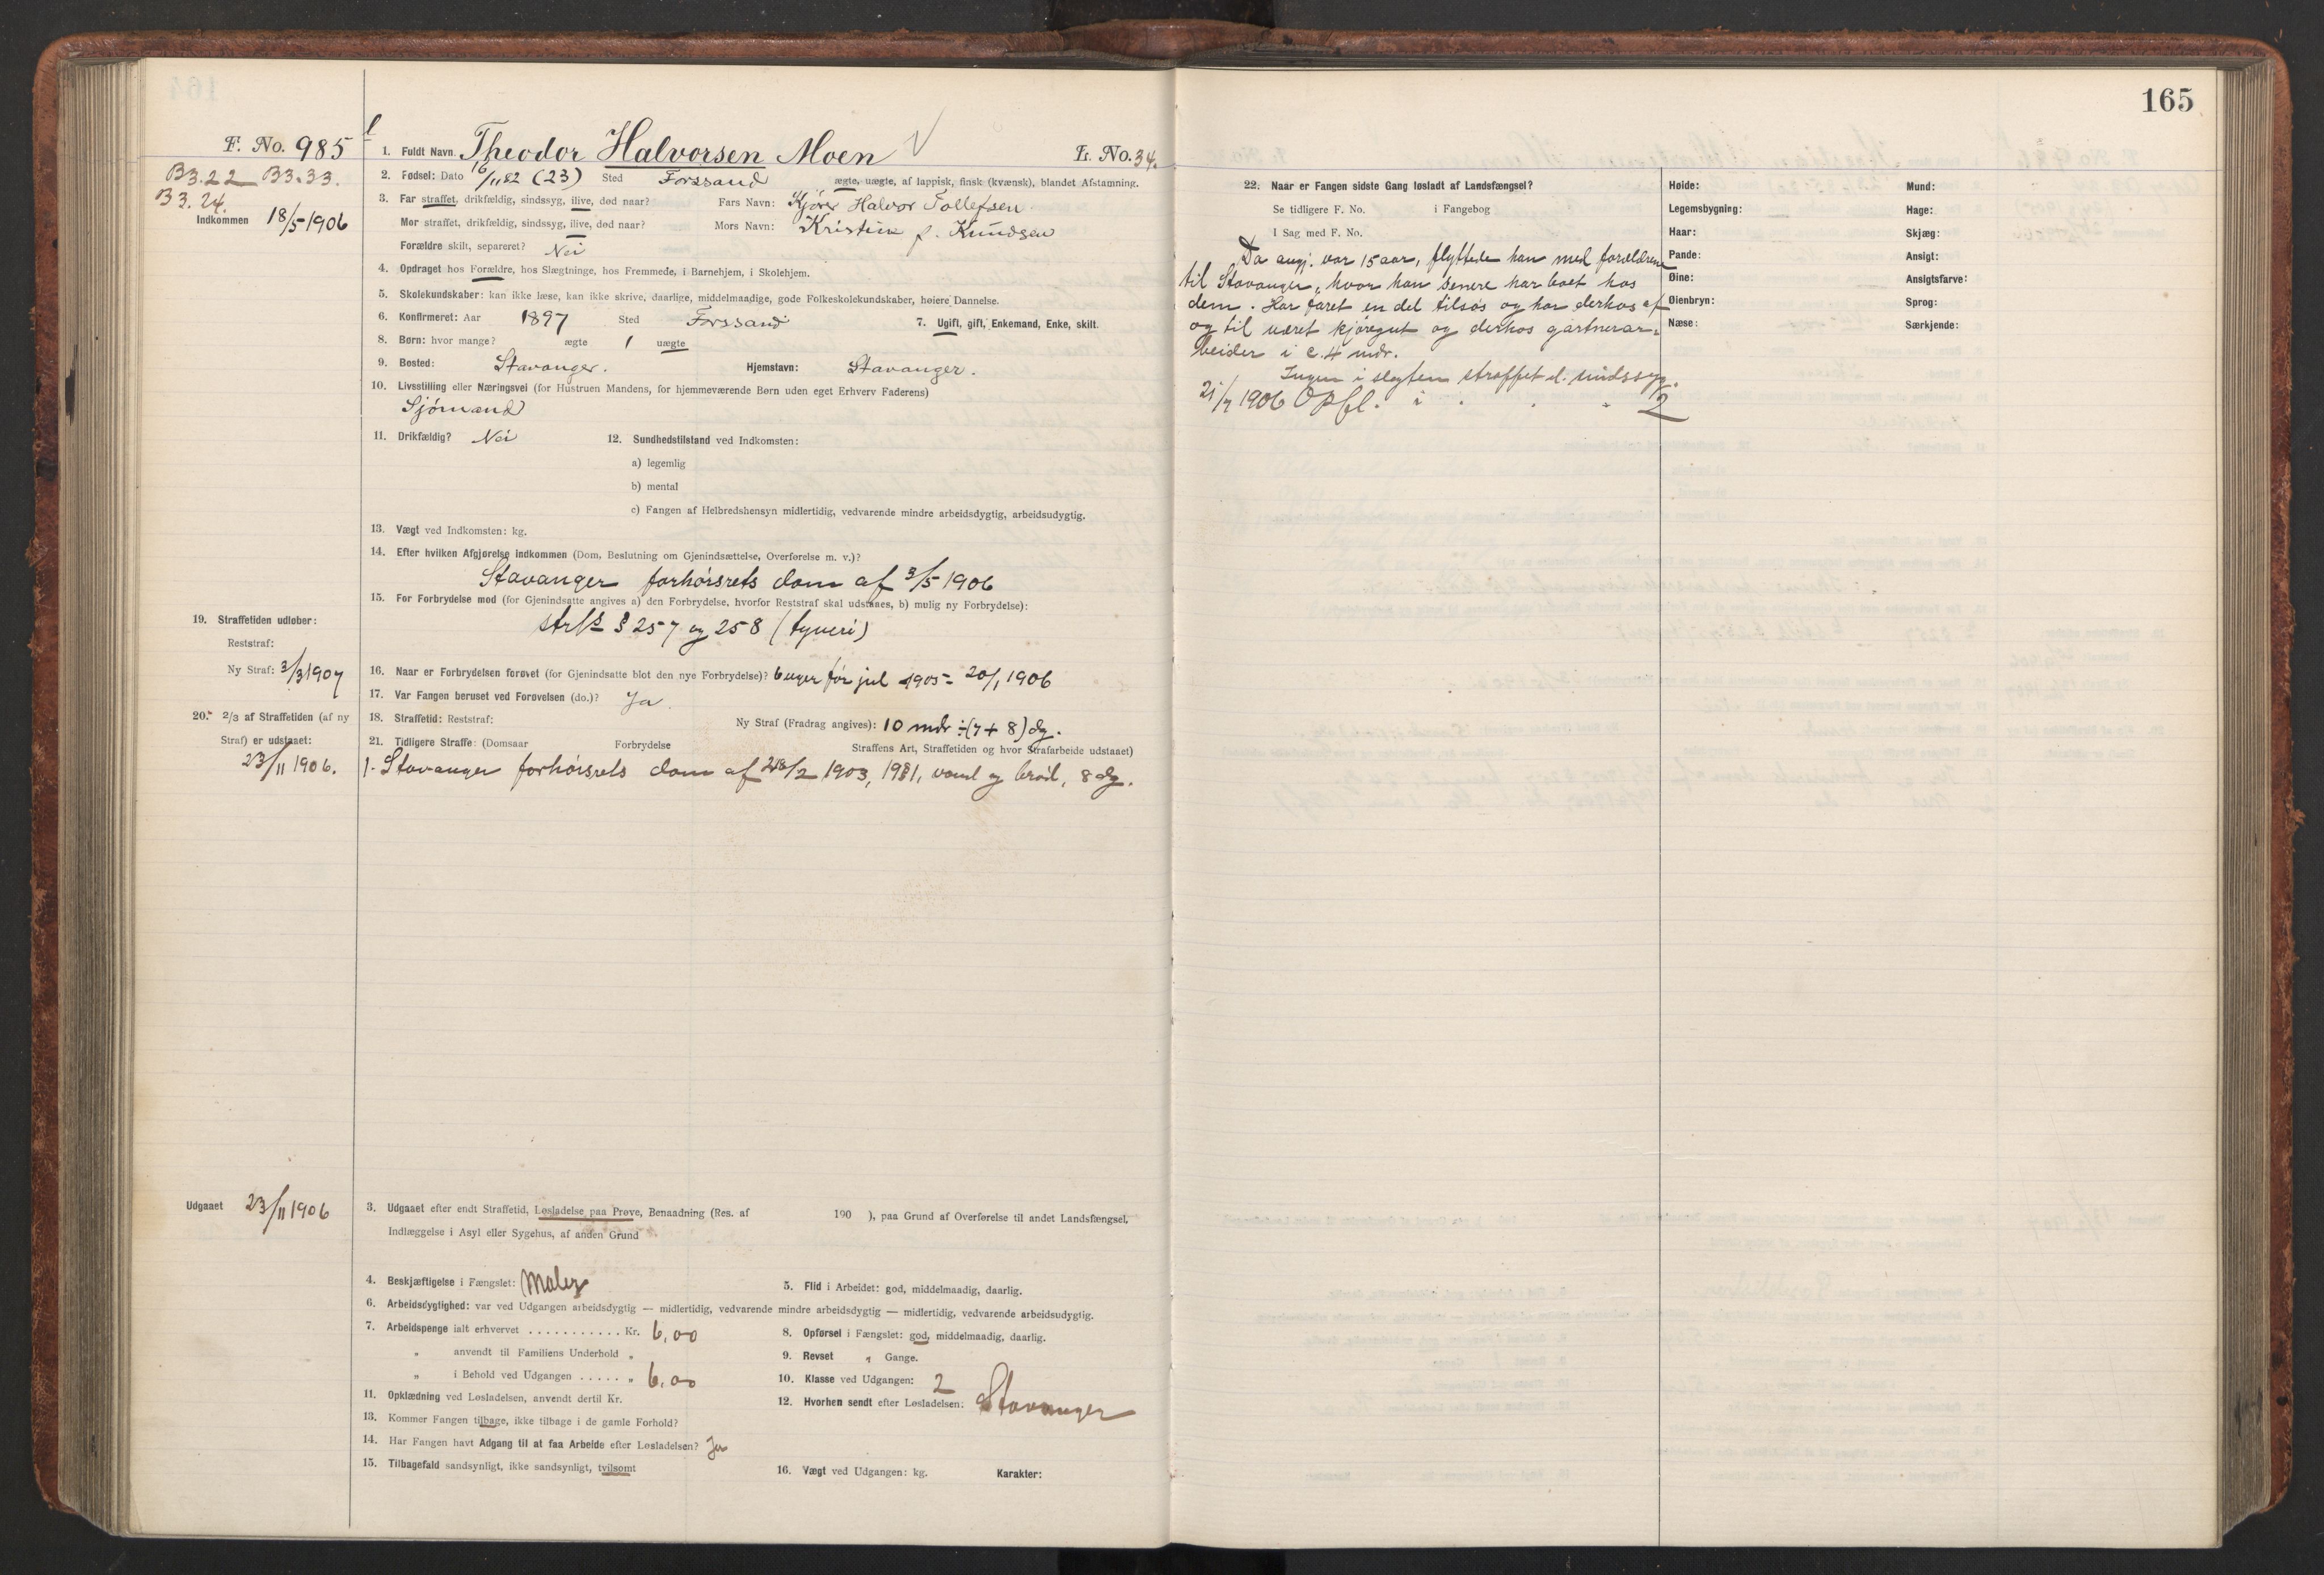 165
F. No. 985
B3.22 B3.33.
B3.24.
Indkommen 18/5-1906
1. Fuldt Navn. Theodor Halvorsen Moen L. No. 34.
2. Fødsel: Dato 16/11 82 (23) Sted Forssand ægte, uægte, af lappisk, finsk (kvænsk), blandet Afstamning.
3. Far straffet, drikfældig, sindssyg, ilive, død naar? Fars Navn: Kjører Halvor Tollefsen
Mor straffet, drikfældig, sindssyg, ilive, død naar? Mors Navn: Kristine f. Knudsen
Forældre skilt, separeret? Nei
4. Opdraget hos Forældre, hos Slægtninge, hos Fremmede, i Barnehjem, i Skolehjem.
5. Skolekundskaber: kan ikke læse, kan ikke skrive, daarlige, middelmaadige, gode Folkeskolekundskaber, høiere Dannelse.
6. Konfirmeret: Aar 1897 Sted Forssand 7. Ugift, gift, Enkemand, Enke, skilt.
8. Børn: hvor mange? ægte 1 uægte
9. Bosted: Stavanger. Hjemstavn: Stavanger.
10. Livsstilling eller Næringsvei (for Hustruen Mandens, for hjemmeværende Børn uden eget Erhverv Faderens)
Sjømand
11. Drikfældig? Nei 12. Sundhedstilstand ved Indkomsten:
a) legemlig
b) mental
c) Fangen af Helbredshensyn midlertidig, vedvarende mindre arbeidsdygtig, arbeidsudygtig.
13. Vægt ved Indkomsten: kg.
14. Efter hvilken Afgjørelse indkommen (Dom, Beslutning om Gjenindsættelse, Overførelse m. v.)?
Stavanger forhørsrets dom af 3/5 1906
15. For Forbrydelse mod (for Gjenindsatte angives a) den Forbrydelse, hvorfor Reststraf skal udstaaes, b) mulig ny Forbrydelse):
strl. § 257 og 258 (tyveri)
19. Straffetiden udløber:
Reststraf:
Ny Straf: 3/3 1907
16. Naar er Forbrydelsen forøvet (for Gjenindsatte blot den nye Forbrydelse)? 6 uger før jul 1905 - 20/1 1906
17. Var Fangen beruset ved Forøvelsen (do.)? Ja.
20. 2/3 af Straffetiden (af ny
Straf) er udstaaet:
23/11 1906.
18. Straffetid: Reststraf: Ny Straf (Fradrag angives): 10 mdr ÷ (7 + 8) dg.
21. Tidligere Straffe: (Domsaar Forbrydelse Straffens Art, Straffetiden og hvor Strafarbeide udstaaet)
1. Stavanger forhørsrets dom af 28/2 1903, vand og brød, 8 dg.
Udgaaet 23/11 1906
3. Udgaaet efter endt Straffetid, Løsladelse paa Prøve, Benaadning (Res. af 190 ), paa Grund af Overførelse til andet Landsfængsel,
Indlæggelse i Asyl eller Sygehus, af anden Grund
4. Beskjæftigelse i Fængslet: Maler 5. Flid i Arbeidet: god, middelmaadig, daarlig.
6. Arbeidsdygtighed: var ved Udgangen arbeidsdygtig — midlertidig, vedvarende mindre arbeidsdygtig — midlertidig, vedvarende arbeidsudygtig.
7. Arbeidspenge ialt erhvervet ........... Kr. 6,00 8. Opførsel i Fængslet: god, middelmaadig, daarlig.
„ anvendt til Familiens Underhold „ 9. Revset „ Gange.
„ i Behold ved Udgangen ..... „ 6,00 10. Klasse ved Udgangen: 2
11. Opklædning ved Løsladelsen, anvendt dertil Kr. 12. Hvorhen sendt efter Løsladelsen: Stavanger
13. Kommer Fangen tilbage, ikke tilbage i de gamle Forhold?
14. Har Fangen havt Adgang til at faa Arbeide efter Løsladelsen? Ja
15. Tilbagefald sandsynligt, ikke sandsynligt, tvilsomt 16. Vægt ved Udgangen: kg. Karakter:
22. Naar er Fangen sidste Gang løsladt af Landsfængsel?
Se tidligere F. No. i Fangebog
I Sag med F. No.
Da angj. var 15 aar, flyttede han med forældrene
til Stavanger, hvor han senere har boet hos
dem. Har faret en del tilsøs og har derhos af
og til været kjøregut og derhos gartnerar-
beider i c. 4 mdr.
Ingen i slegten straffet el. sindssyg.
21/7 1906 Opfl. i 2
Høide: Mund:
Legemsbygning: Hage:
Haar: Skjæg:
Pande: Ansigt:
Øine: Ansigtsfarve:
Øienbryn: Sprog:
Næse: Særkjende: